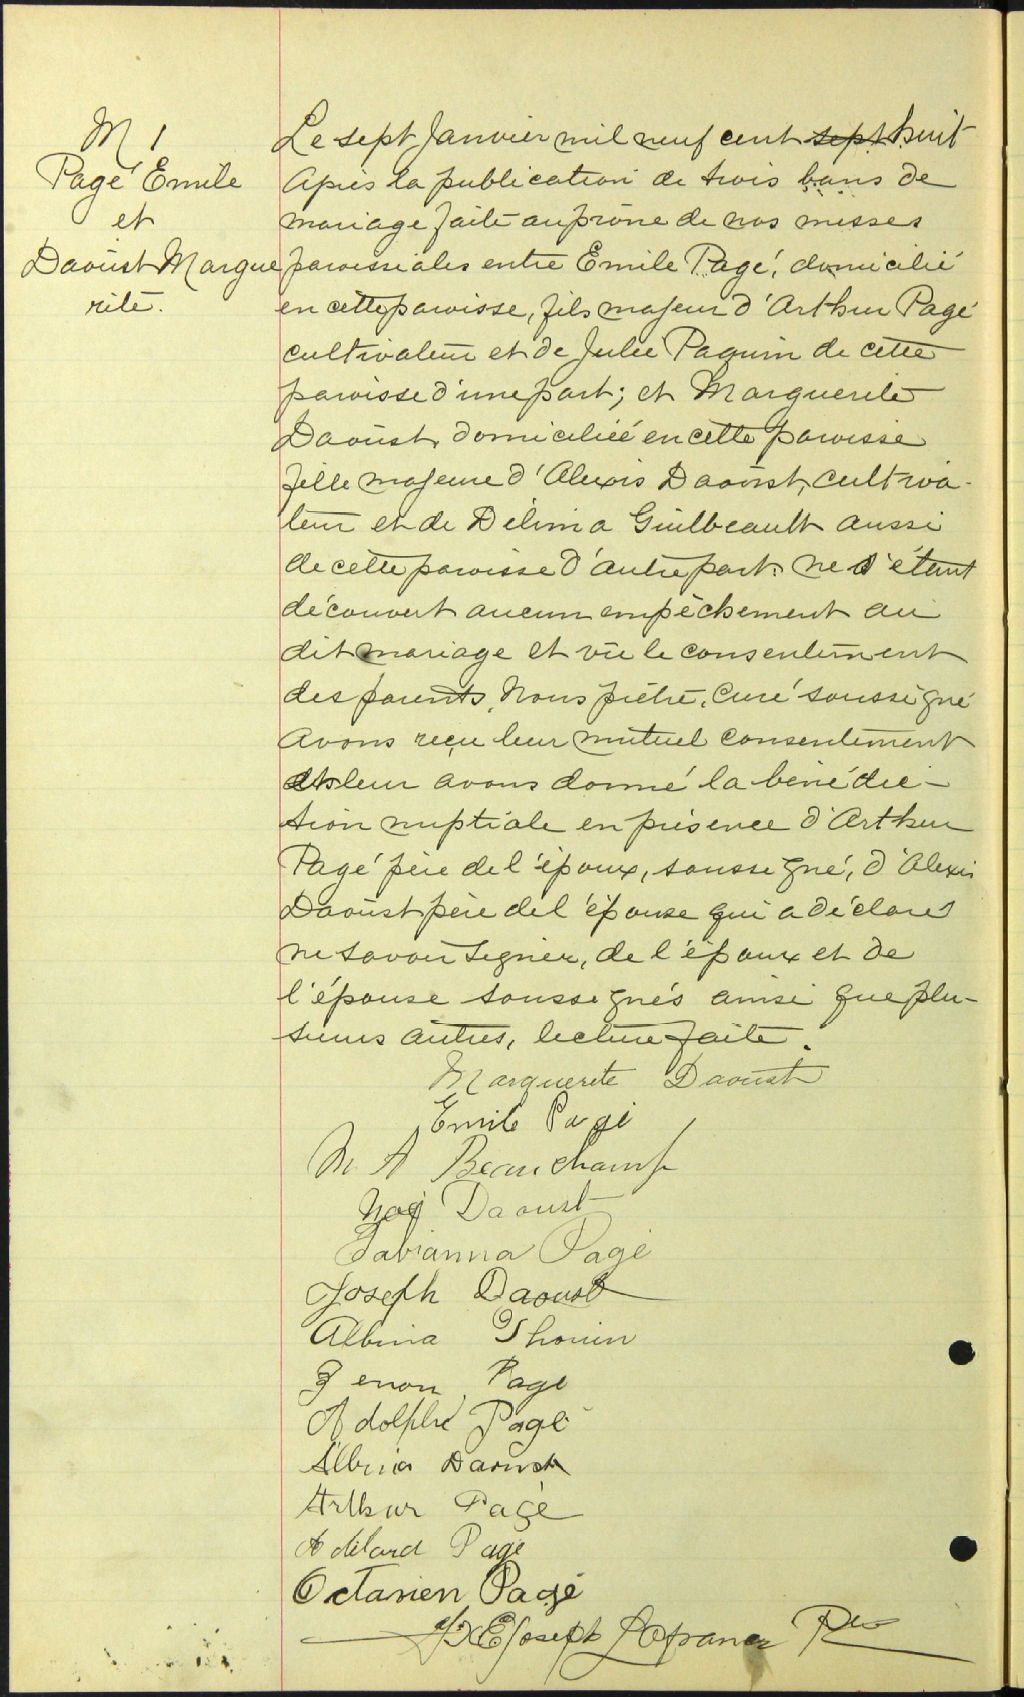 M 1
Pagé Emile
et
Daoust Margue
rite.
Le sept Janvier mil neuf cent sept huit
Après la publication de trois bans de
mariage faite au prône de nos messes
paroissiales entre Emile Pagé, domicilié
en cette paroisse, fils majeur d'Arthur Pagé
cultivateur et de Julie Paquin de cette
paroisse d'une part; et Marguerite
Daoust, domiciliée en cette paroisse
fille majeure d'Alexis Daoust, cultiva-
teur et de Délima Guilbeault aussi
de cette paroisse d'autre part: ne s'étant
découvert aucun empêchement au
dit mariage et vu le consentement
des parents, Nous prêtre, Curé soussigné
avons reçu leur mutuel consentement
et leur avons donné la bénédic-
tion nuptiale en présence d'Arthur
Pagé père de l'époux, soussigné, d'Alexis
Daoust père de l'épouse qui a déclaré
ne savoir signer, de l'époux et de
l'épouse soussignés ainsi que plu-
sieurs autres, lecture faite.
Marguerite Daoust
Emile Pagé
M A Beauchamp
Daoust
Fabianna Pagé
Joseph Daoust
Albina Thouin
Zenon Page
Adolphe Pagé
Albina Daoust
Arthur Pagé
Adélard Page
Octavien Pagé
Joseph Ptre